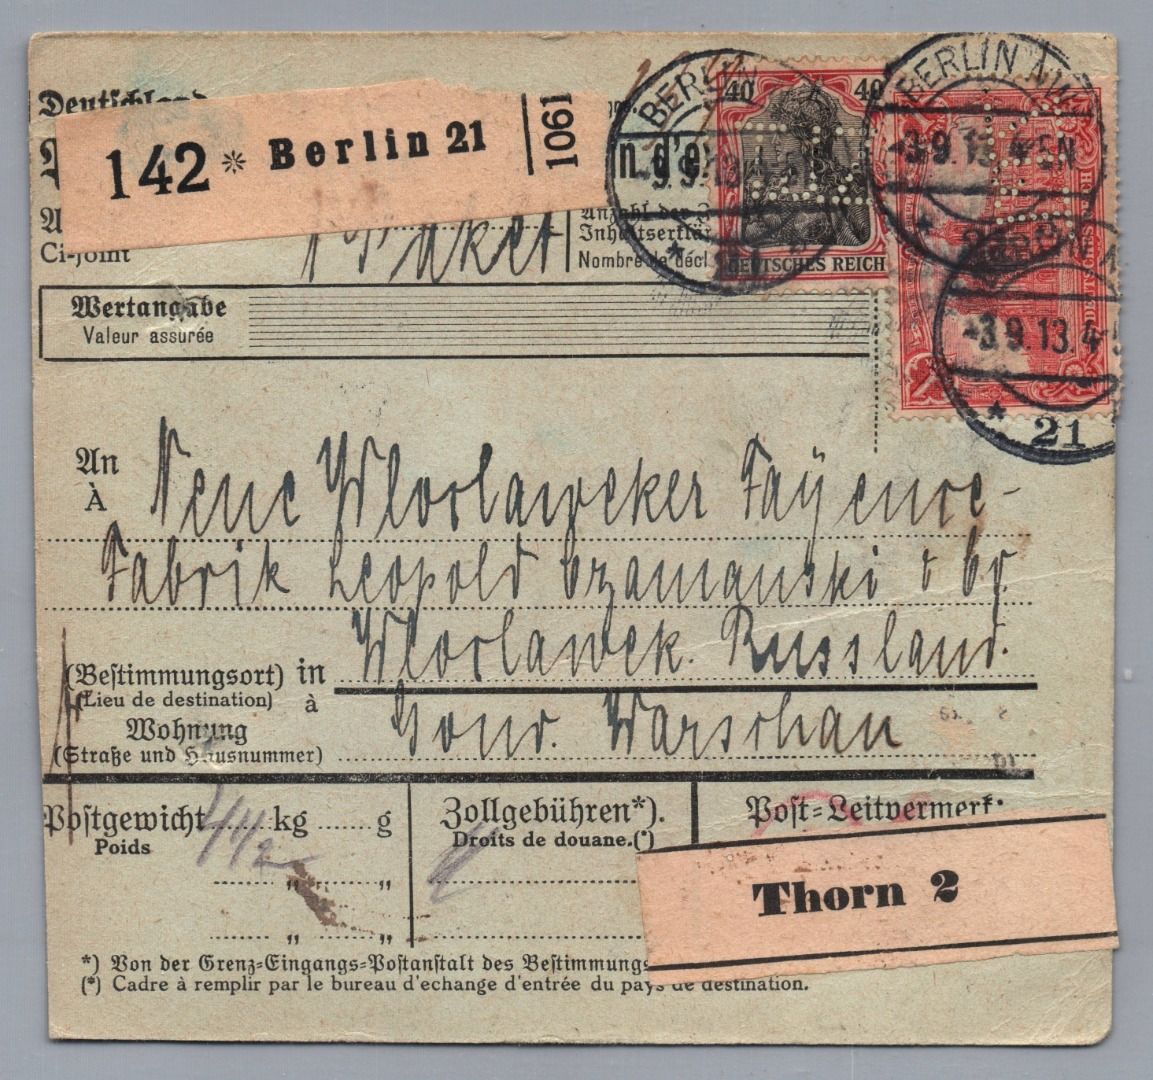 Deutschland
142 * Berlin 21
1061
Ci-joint
1 Paket
Nombre de décl
40 40
DEUTSCHES REICH
BERLIN
BERLIN NW
-3.9.13.4-5N
-3.9.13.4-5
21
Wertangabe
Valeur assurée
An
À
Neue Wloclaweker Fayence-
Fabrik Leopold Czamanski & Co.
Wloclawek. Russland.
(Bestimmungsort) in
(Lieu de destination) à
Gouv. Warschau
Wohnung
(Straße und Hausnummer)
Postgewicht kg g
Poids
4 1/2
Zollgebühren*).
Droits de douane.(*)
Post-Leitvermerk.
Thorn 2
*) Von der Grenz-Eingangs-Postanstalt des Bestimmungs
(*) Cadre à remplir par le bureau d'echange d'entrée du pays de destination.